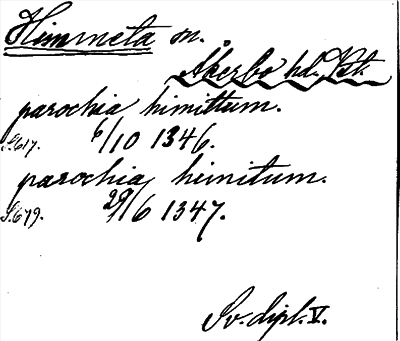 Himmeta sn.
Åkerbo hd. Vstm.
parochia himittum.
S.617. 6/10 1346.
parochia himitum.
S.679. 29/6 1347.
Sv. dipl. V.